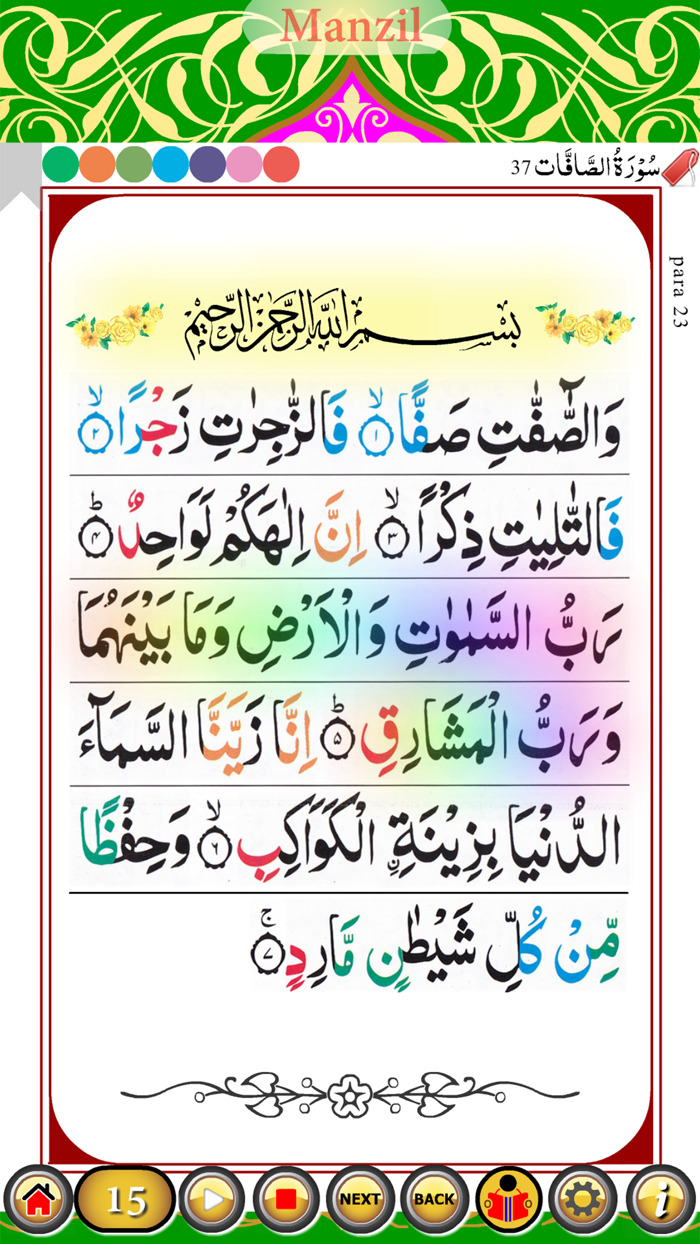 Manzil
سُوْرَةُ الصَّافَّات 37
para 23
بسم الله الرحمن الرحيم
وَالصّٰٓفّٰتِ صَفًّا ۙ﴿۱﴾ فَالزّٰجِرٰتِ زَجْرًا ۙ﴿۲﴾
فَالتّٰلِيٰتِ ذِكْرًا ۙ﴿۳﴾ اِنَّ اِلٰهَكُمْ لَوَاحِدٌ ؕ﴿۴﴾
رَبُّ السَّمٰوٰتِ وَالْاَرْضِ وَمَا بَيْنَهُمَا
وَرَبُّ الْمَشَارِقِ ؕ﴿۵﴾ اِنَّا زَيَّنَّا السَّمَآءَ
الدُّنْيَا بِزِيْنَةِ ۨ الْكَوَاكِبِ ۙ﴿۶﴾ وَحِفْظًا
مِّنْ كُلِّ شَيْطٰنٍ مَّارِدٍ ۚ﴿۷﴾
15
NEXT
BACK
i